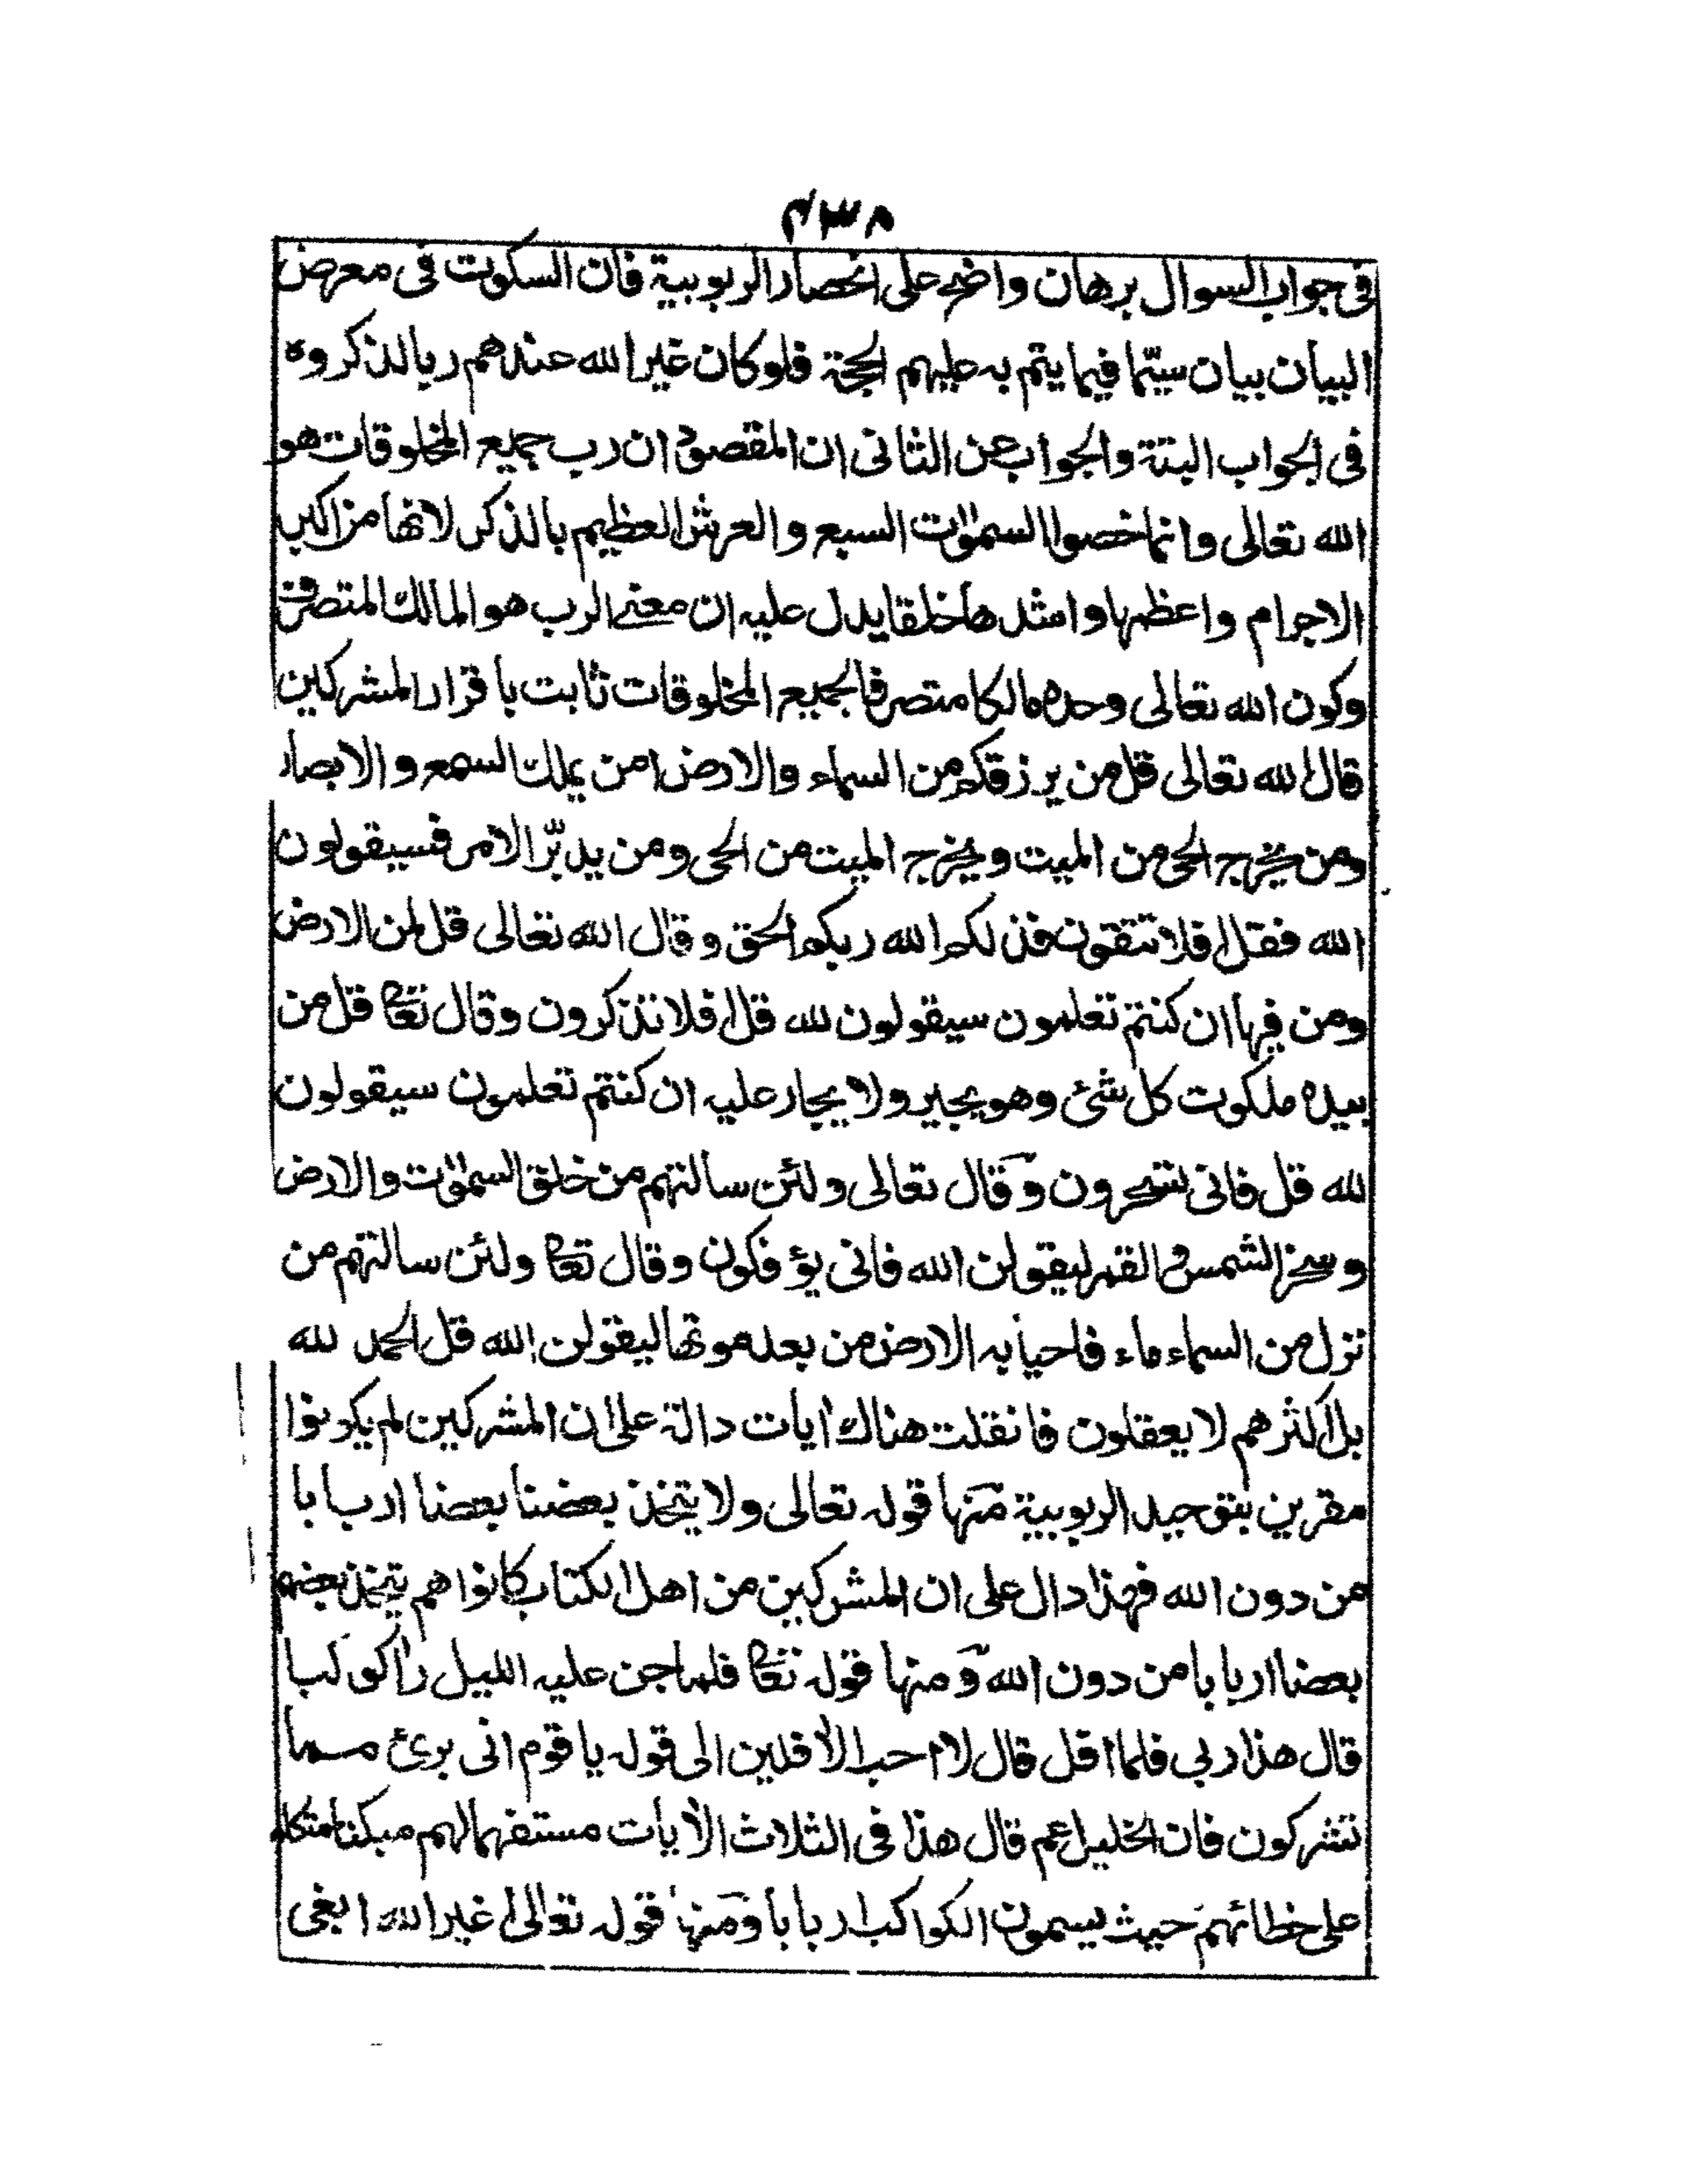 ٤٣٨
فى جواب السوال برهان واضح على انحصار الربوبية فان السكوت فى معرض
البيان بيان سيّما فيما يتم به عليهم الحجة فلو كان غير الله عندهم ربا لذكروه
فى الجواب البتة والجواب عن الثانى ان المقصود ان رب جميع المخلوقات هو
الله تعالى وانما خصوا السمٰوٰت السبع والعرش العظيم بالذكر لانها من اكبر
الاجرام واعظمها وامثدها خلقا يدل عليه ان معنى الرب هو المالك المتصرف
وكون الله تعالى وحده مالكا متصرفا لجميع المخلوقات ثابت باقرار المشركين
قال الله تعالى قل من يرزقكم من السماء والارض امن يملك السمع والابصار
ومن يخرج الحى من الميت ويخرج الميت من الحى ومن يدبّر الامر فسيقولون
الله فقل افلا تتقون فذلكم الله ربكم الحق وقال الله تعالى قل لمن الارض
ومن فيها ان كنتم تعلمون سيقولون لله قل افلا تذكرون وقال تعا قل من
بيده ملكوت كل شئ وهو يجير ولا يجار عليه ان كنتم تعلمون سيقولون
لله قل فانى تسحرون وقال تعالى ولئن سالتهم من خلق السمٰوٰت والارض
وسخر الشمس والقمر ليقولن الله فانى يؤفكون وقال تعا ولئن سالتهم من
نزل من السماء ماء فاحيا به الارض من بعد موتها ليقولن الله قل الحمد لله
بل اكثرهم لا يعقلون فان قلت هناك اٰيات دالة على ان المشركين لم يكونوا
مقرين بتوحيد الربوبية منها قوله تعالى ولا يتخذ بعضنا بعضا اربابا
من دون الله فهذا دال على ان المشركين من اهل الكتاب كانوا هم يتخذ بعضهم
بعضا اربابا من دون الله ومنها قوله تعا فلما جن عليه الليل راٰ كوكبا
قال هذا ربى فلما افل قال لا احب الاٰفلين الى قوله يا قوم انى برئ مما
تشركون فان الخليل عم قال هذا فى الثلاث الاٰيات مستفهما لهم مبكتا متكلما
على خطائهم حيث يسمون الكواكب اربابا ومنها قوله تعالى اغير الله ابغى